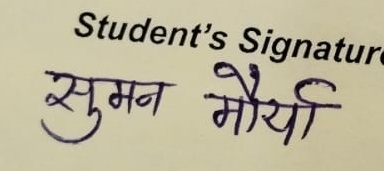 Student's Signature
सुमन मौर्या